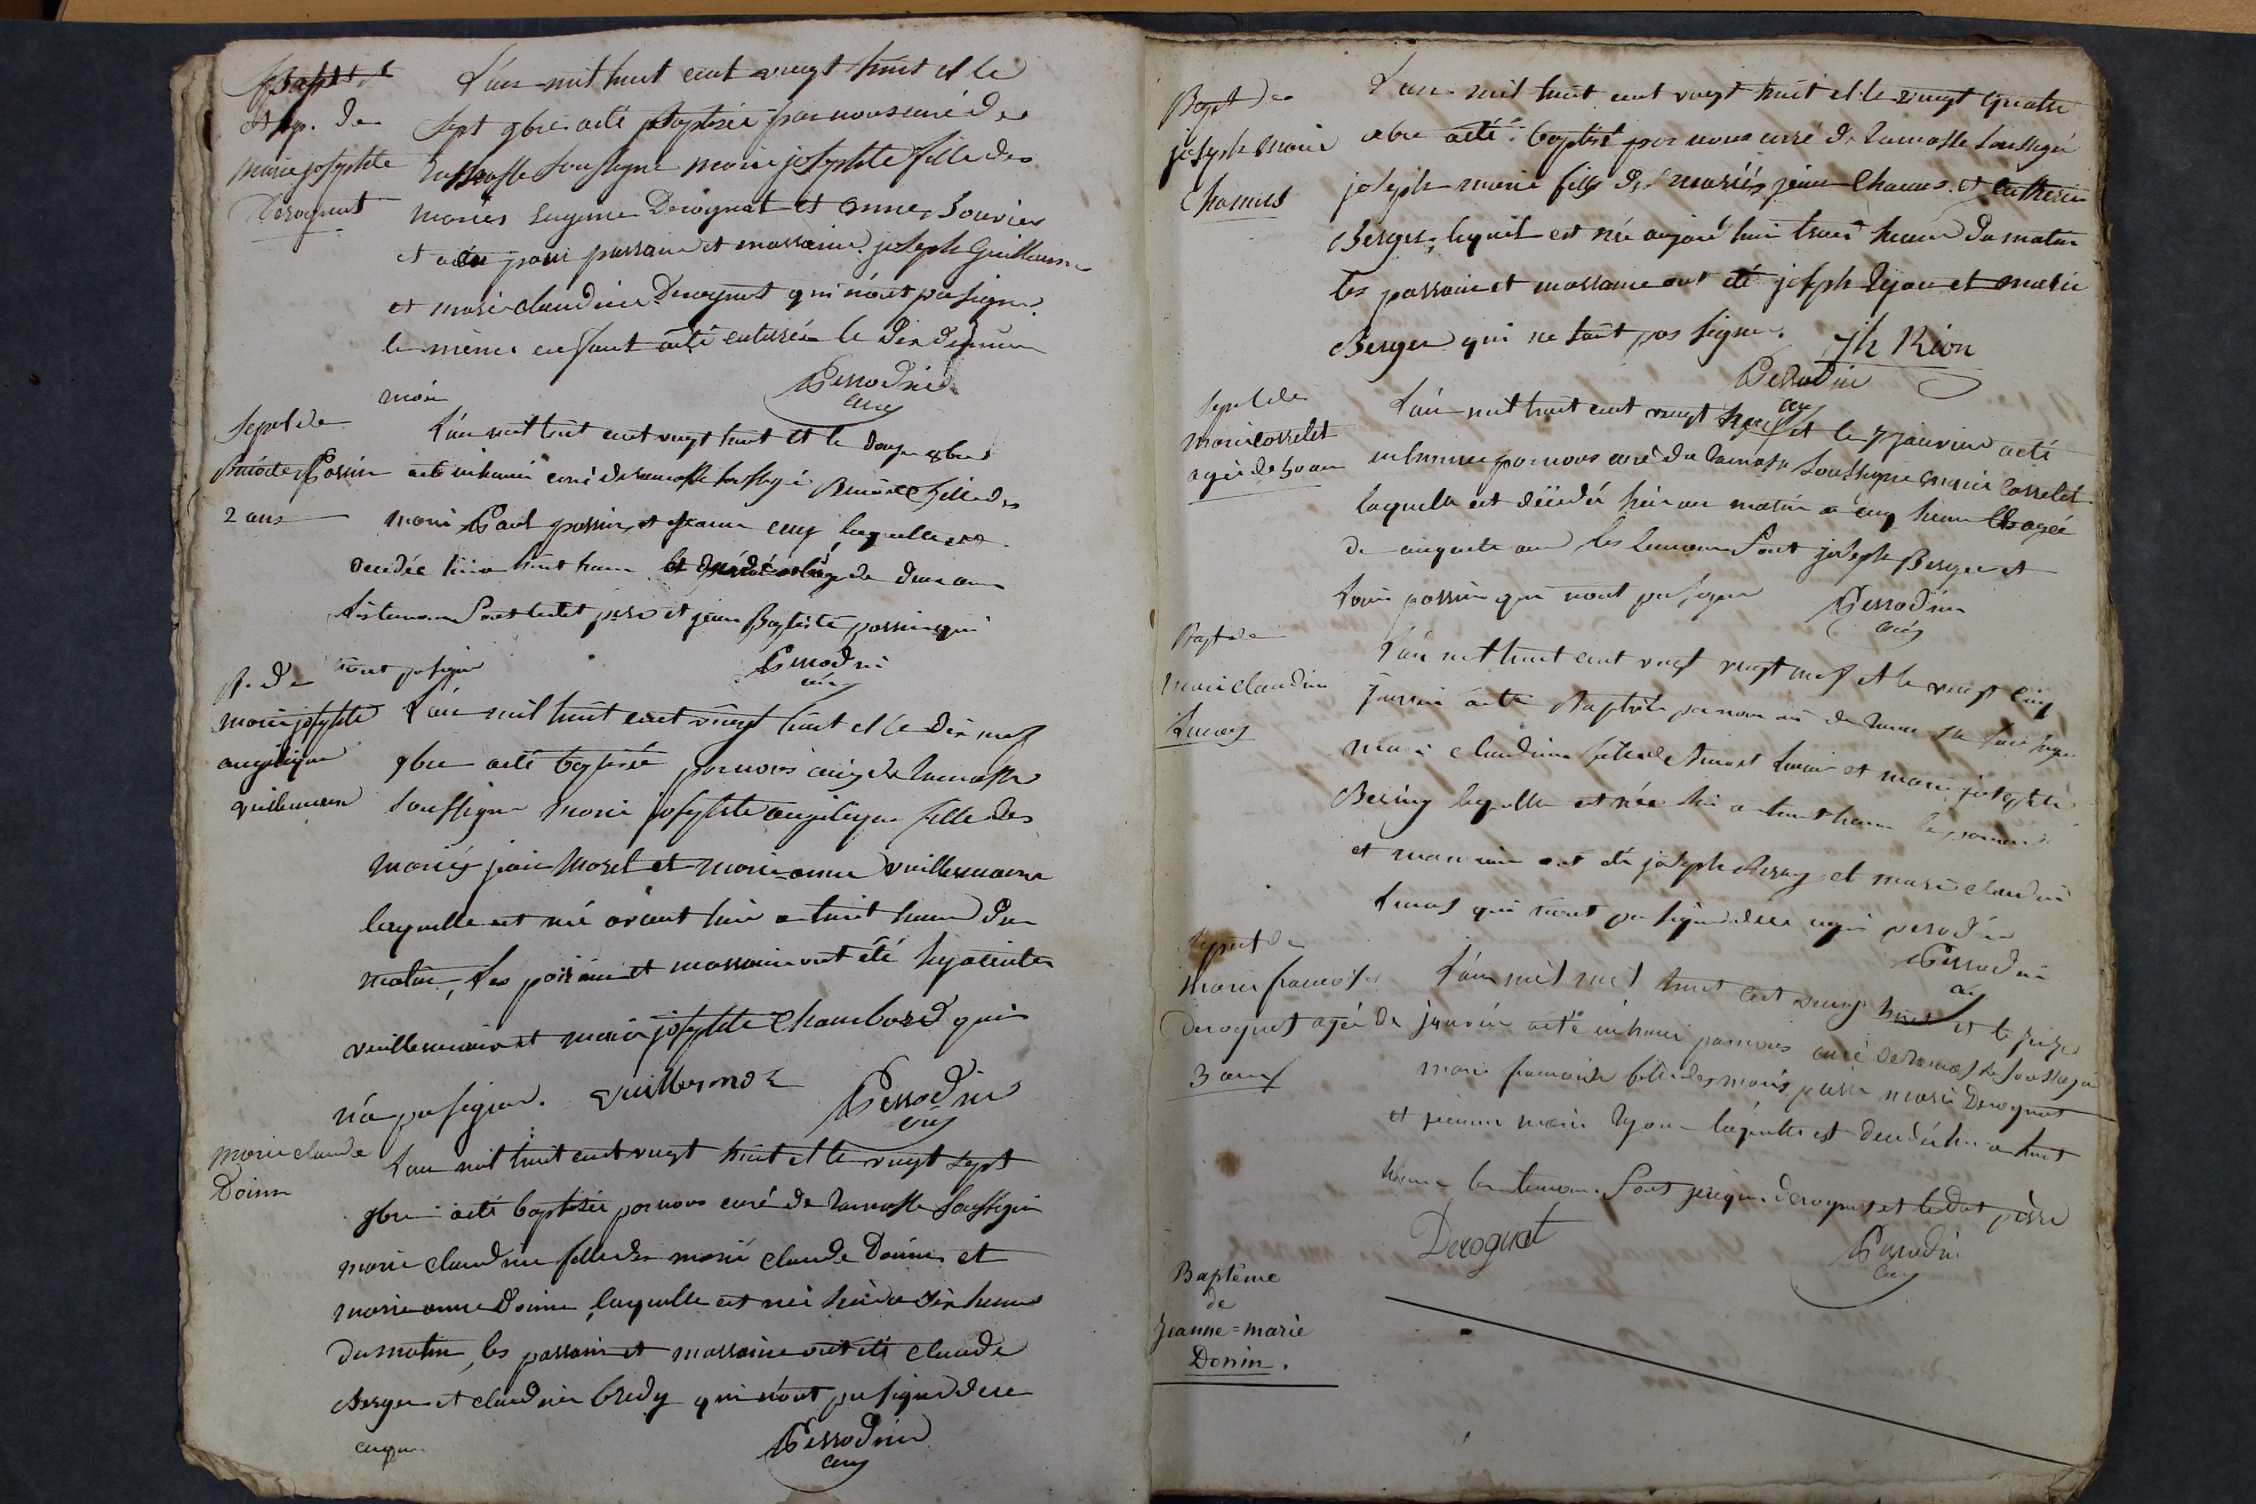 Bapt. de
Marie josephte
Derognat
L'an mil huit cent vingt huit et le
sept 9bre a été Baptisée par nous curé de
Ramasse soussigné marie josephte fille des
mariés Eugene Derognat et Anne Bouvier
et ont été pour parrain et marraine joseph Guillaume
et marie claudine Derognat qui n'ont pu signer.
le même enfant a été enterrée le dix du même
mois
Perrodin
curé
Sepult de
Benoite Possin
2 ans
L'an mil huit cent vingt huit et le douze 9bre
a été inhumé curé de ramasse soussigné Benoite fille des
mariés Paul possin et jeanne laquelle est
décédée hier a huit heure de deux ans
les temoins sont ledit pere et jean Baptiste possin qui
n'ont pu signer
Perrodin
curé
B. de
marie josephte
angelique
vuillemin
L'an mil huit cent vingt huit et le dix neuf
9bre a été baptisée par nous curé de Ramasse
soussigné Marie josephte angelique fille des
mariés jean Morel et marie anne vuillermoz
laquelle est née avant hier a huit heure du
matin, les parrain et marraine ont été hyacinte
vuillermoz et marie josephte Chambard qui
n'a pu signer. vuillermoz
Perrodin
curé
marie claude
Doinin
L'an mil huit cent vingt huit et le vingt sept
9bre a été baptisée par nous curé de Ramasse soussigné
marie claudine fille des mariés claude Donin et
marie anne Donin laquelle est née hier a dix heures
du matin, les parrain et marraine ont été claude
Berger et claudine Bredy qui n'ont pu signer de ce
enquis
Perrodin
curé
Bapt de
joseph marie
Chanus
L'an mil huit cent vingt huit et le vingt quatre
xbre a été baptisé par nous curé de Ramasse soussigné
joseph marie fils des mariés jean Chanus et Catherine
Berger, lequel est né aujourd'hui heure du matin
les parrain et marraine ont été joseph Ryon et marie
Berger qui ne sait pas signer. Jh Rion
Perrodin
curé
Sepult de
Marie Cosselet
agée de 50 ans
L'an mil huit cent vingt et le 7 janvier a été
inhumée par nous curé de Ramasse soussigné marie Cosselet
laquelle est décédée hier au matin a cinq heure agée
de cinquante ans les temoins sont joseph Berger et
Louis possin qui n'ont pu signer
Perrodin
curé
Bapt de
marie claudine
L'an mil huit cent vingt vingt neuf et le vingt cinq
janvier a été Baptisée par nous curé de Ramasse soussigné
marie claudine fille de et marie josephte
laquelle est née hier a huit heure les parrain
et marraine ont été joseph et marie claudine
qui n'ont pu signer de ce enquis perrodin
Perrodin
curé
Sepult de
Marie francoise
derognat agée de
3 ans
L'an mil mil huit cent vingt huit et le seize
janvier a été inhumé par nous curé de Ramasse soussigné
marie francoise fille des mariés pierre marie Derognat
et jeanne marie Ryon laquelle est décédée hier a huit
heure les temoins sont jacques derognat et ledit père
Derognat
Perrodin
curé
Baptême
de
Jeanne=marie
Donin.